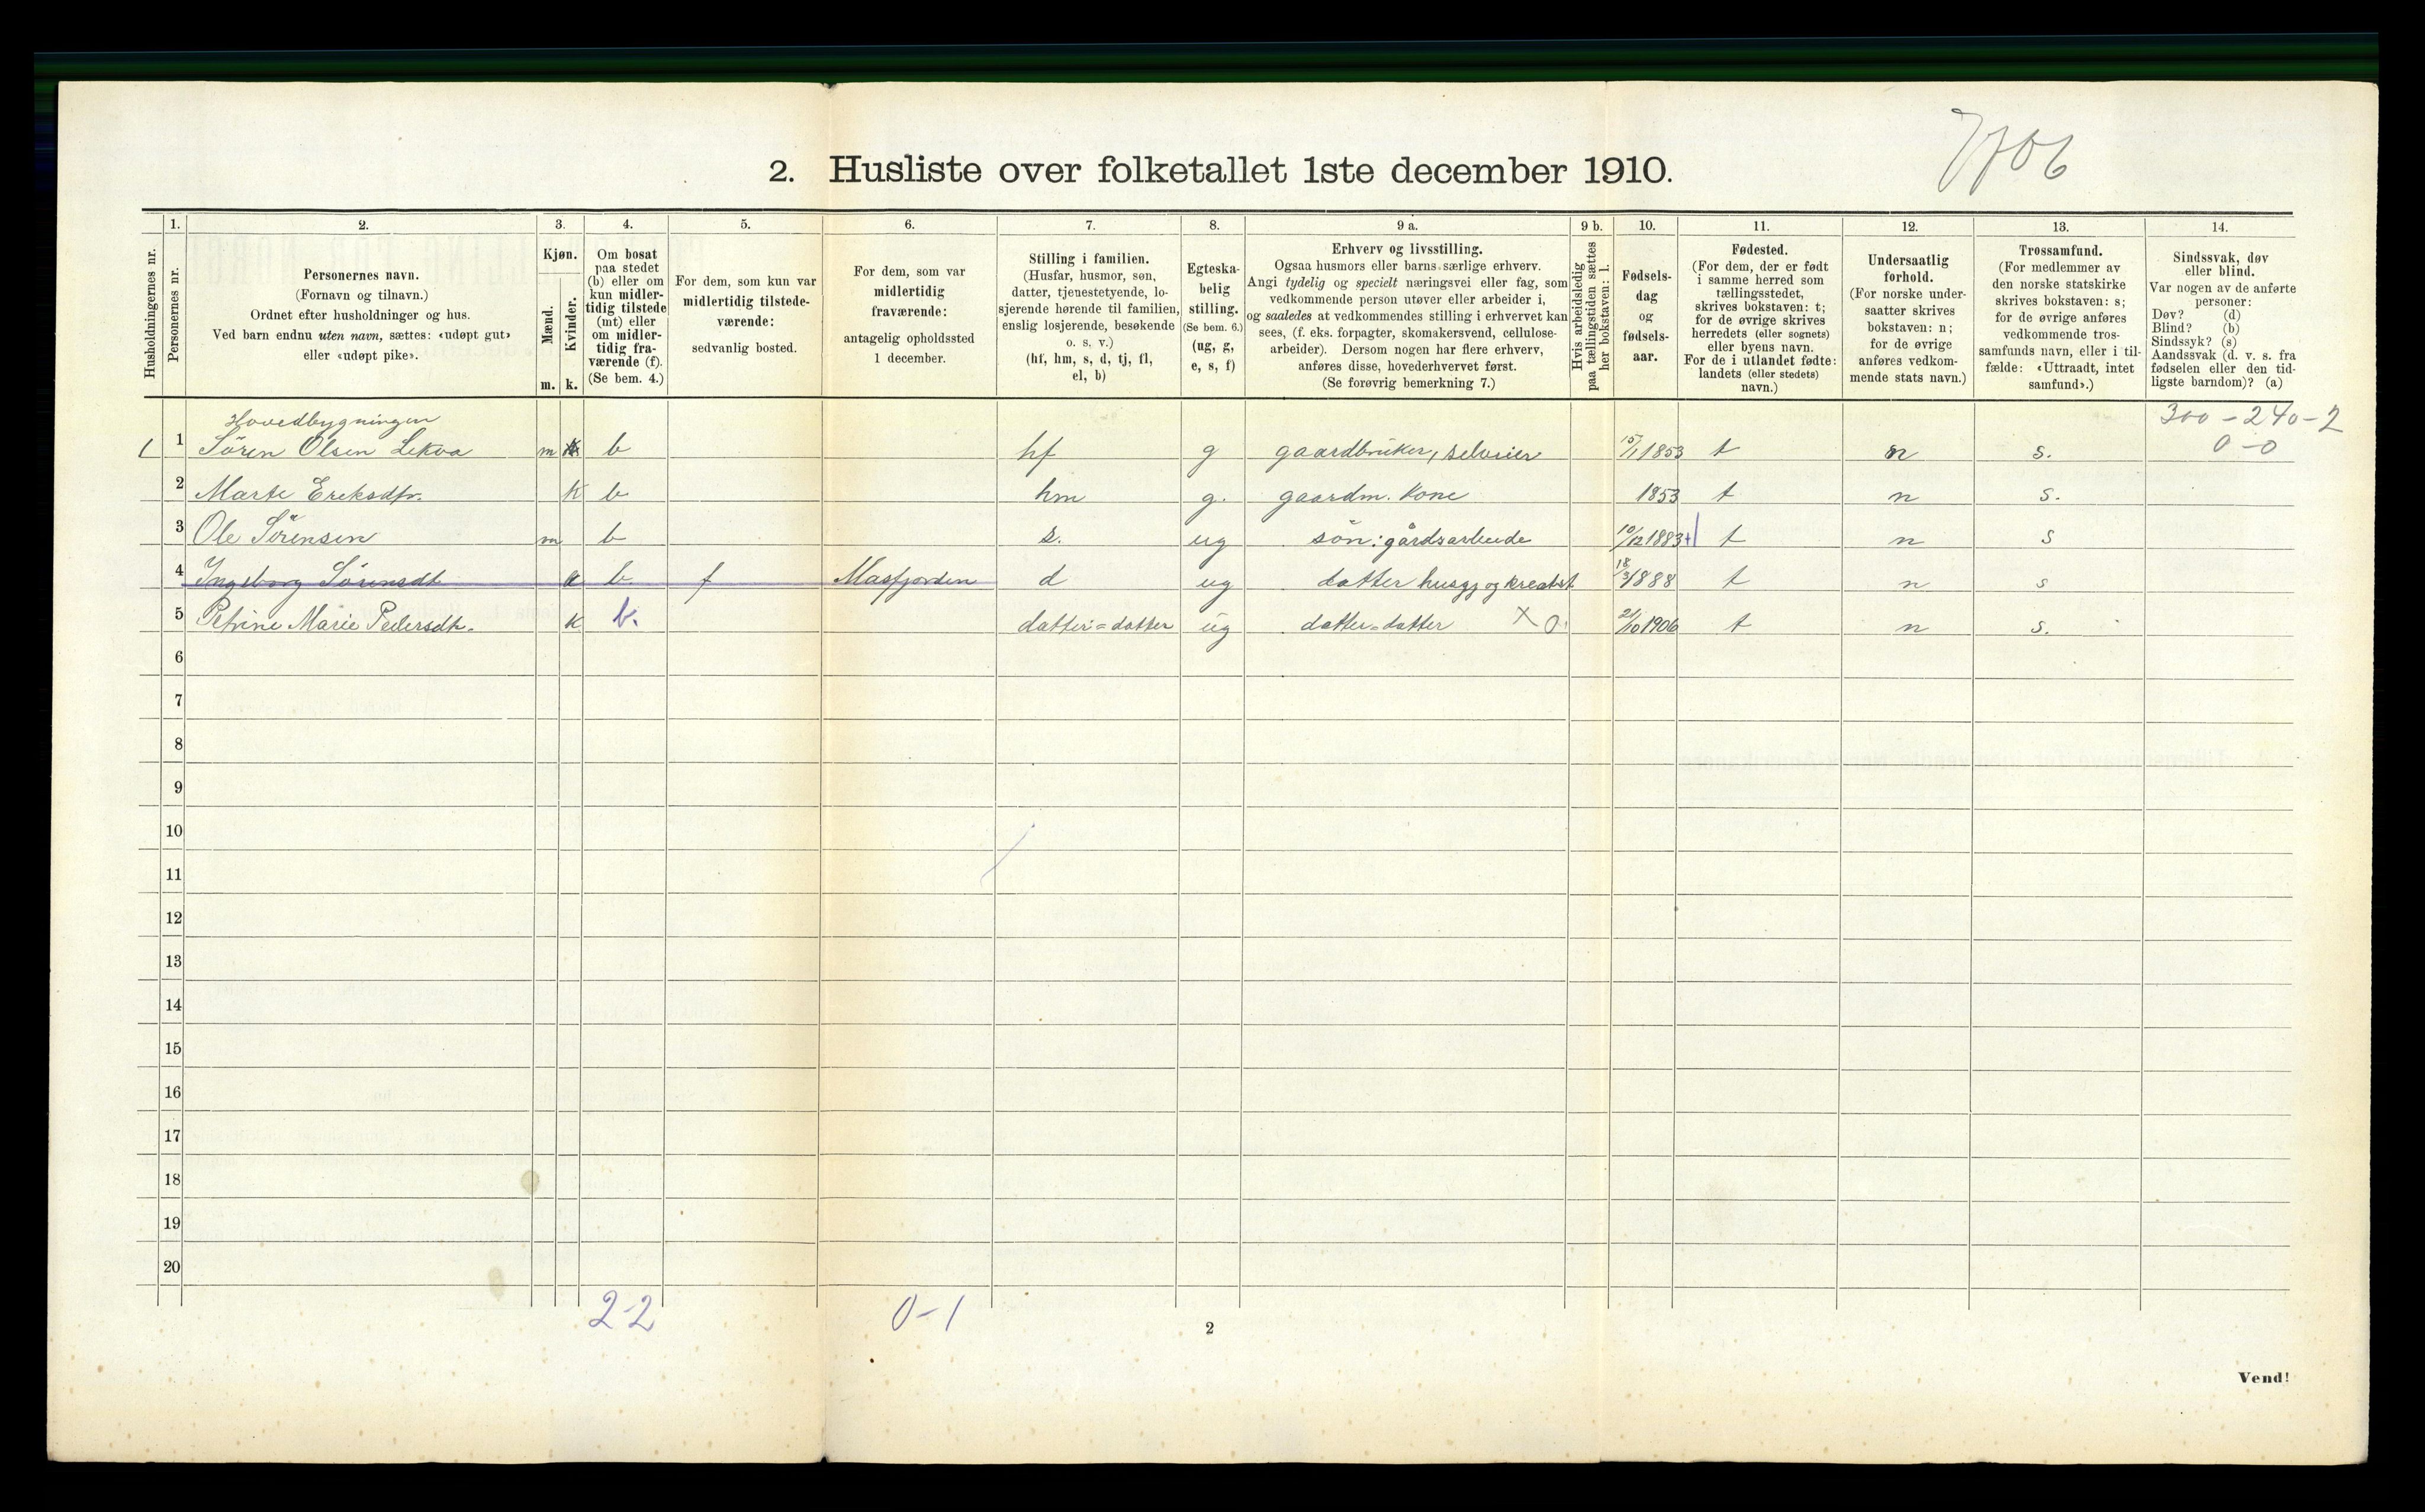 7706
2. Husliste over folketallet 1ste december 1910.
Husholdningernes nr.
1.
Personernes nr.
2.
Personernes navn.
(Fornavn og tilnavn.)
Ordnet efter husholdninger og hus.
Ved barn endnu uten navn, sættes: «udøpt gut»
eller «udøpt pike».
3.
Kjøn.
Mænd.
Kvinder.
m. k.
4.
Om bosat
paa stedet
(b) eller om
kun midler-
tidig tilstede
(mt) eller
om midler-
tidig fra-
værende (f).
(Se bem. 4.)
5.
For dem, som kun var
midlertidig tilstede-
værende:
sedvanlig bosted.
6.
For dem, som var
midlertidig
fraværende:
antagelig opholdssted
1 december.
7.
Stilling i familien.
(Husfar, husmor, søn,
datter, tjenestetyende, lo-
sjerende hørende til familien,
enslig losjerende, besøkende
o. s. v.)
(hf, hm, s, d, tj, fl,
el, b)
8.
Egteska-
belig
stilling.
(Se bem. 6.)
(ug, g,
e, s, f)
9 a.
Erhverv og livsstilling.
Ogsaa husmors eller barns særlige erhverv.
Angi tydelig og specielt næringsvei eller fag, som
vedkommende person utøver eller arbeider i,
og saaledes at vedkommendes stilling i erhvervet kan
sees, (f. eks. forpagter, skomakersvend, cellulose-
arbeider). Dersom nogen har flere erhverv,
anføres disse, hovederhvervet først.
(Se forøvrig bemerkning 7.)
9 b.
Hvis arbeidsledig
paa tællingstiden sættes
her bokstaven: l.
10.
Fødsels-
dag
og
fødsels-
aar.
11.
Fødested.
(For dem, der er født
i samme herred som
tællingsstedet,
skrives bokstaven: t;
for de øvrige skrives
herredets (eller sognets)
eller byens navn.
For de i utlandet fødte:
landets (eller stedets)
navn.)
12.
Undersaatlig
forhold.
(For norske under-
saatter skrives
bokstaven: n;
for de øvrige
anføres vedkom-
mende stats navn.)
13.
Trossamfund.
(For medlemmer av
den norske statskirke
skrives bokstaven: s;
for de øvrige anføres
vedkommende tros-
samfunds navn, eller i til-
fælde: «Uttraadt, intet
samfund».)
14.
Sindssvak, døv
eller blind.
Var nogen av de anførte
personer:
Døv? (d)
Blind? (b)
Sindssyk? (s)
Aandssvak (d. v. s. fra
fødselen eller den tid-
ligste barndom)? (a)
Hovedbygningen 300-240-2
1 1 Sören Olsen Lekva m b hf g gaardbruker, selveier 15/1 1853 t n s. 0-0
2 Marte Ereksdtr. k b hm g. gaardm. kone 1853 t n s.
3 Ole Sörensen m b s. ug sön: gårdsarbeide 10/12 1883 t n s
4 Ingeborg Sörensdt k b f Masfjorden d ug datter husgj og kreaturst 18/3 1888 t n s
5 Petrine Marie Pedersdtr. k b. datter=datter ug datter=datter X 0 21/10 1906 t n s.
6
7
8
9
10
11
12
13
14
15
16
17
18
19
20
2-2 0-1
2
Vend!